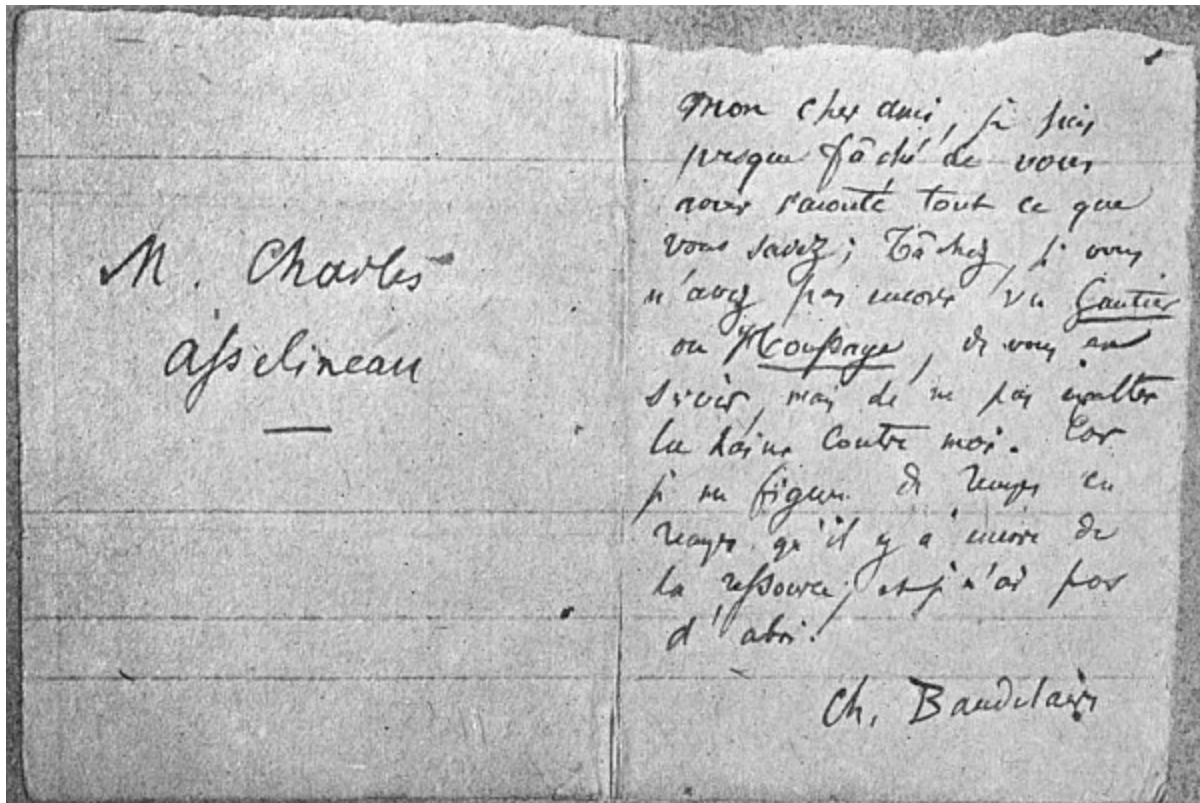 M. Charles
Asselineau
Mon cher ami, je suis
presque fâché de vous
avoir raconté tout ce que
vous savez; Tâchez, si vous
n'avez pas encore vu Gautier
ou Houssaye, de vous en
servir, mais de ne pas
la haine contre moi. Car
je me figure de temps en
temps qu'il y a encore de
la ressource; et je n'ai pas
d'abri.
Ch. Baudelaire